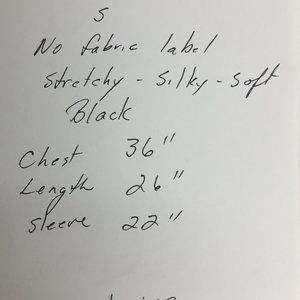 S
No fabric label
Stretchy - Silky - Soft
Black
Chest 36"
Length 26"
Sleeve 22"